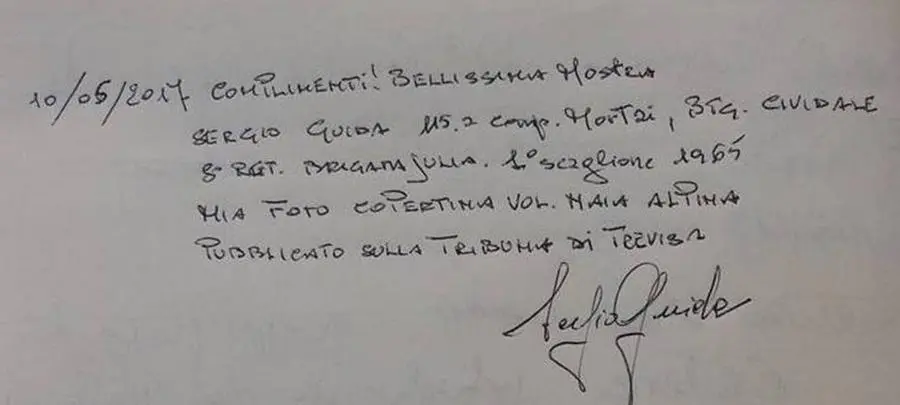 10/05/2017 COMPLIMENTI! BELLISSIMA MOSTRA
SERGIO GUIDA 115.a comp. MORTAI, BTG. CIVIDALE
8° RGT. BRIGATA JULIA. 1° scaglione 1965
MIA FOTO COPERTINA VOL. NAIA ALPINA
PUBBLICATO SULLA TRIBUNA DI TREVISO
Sergio Guida